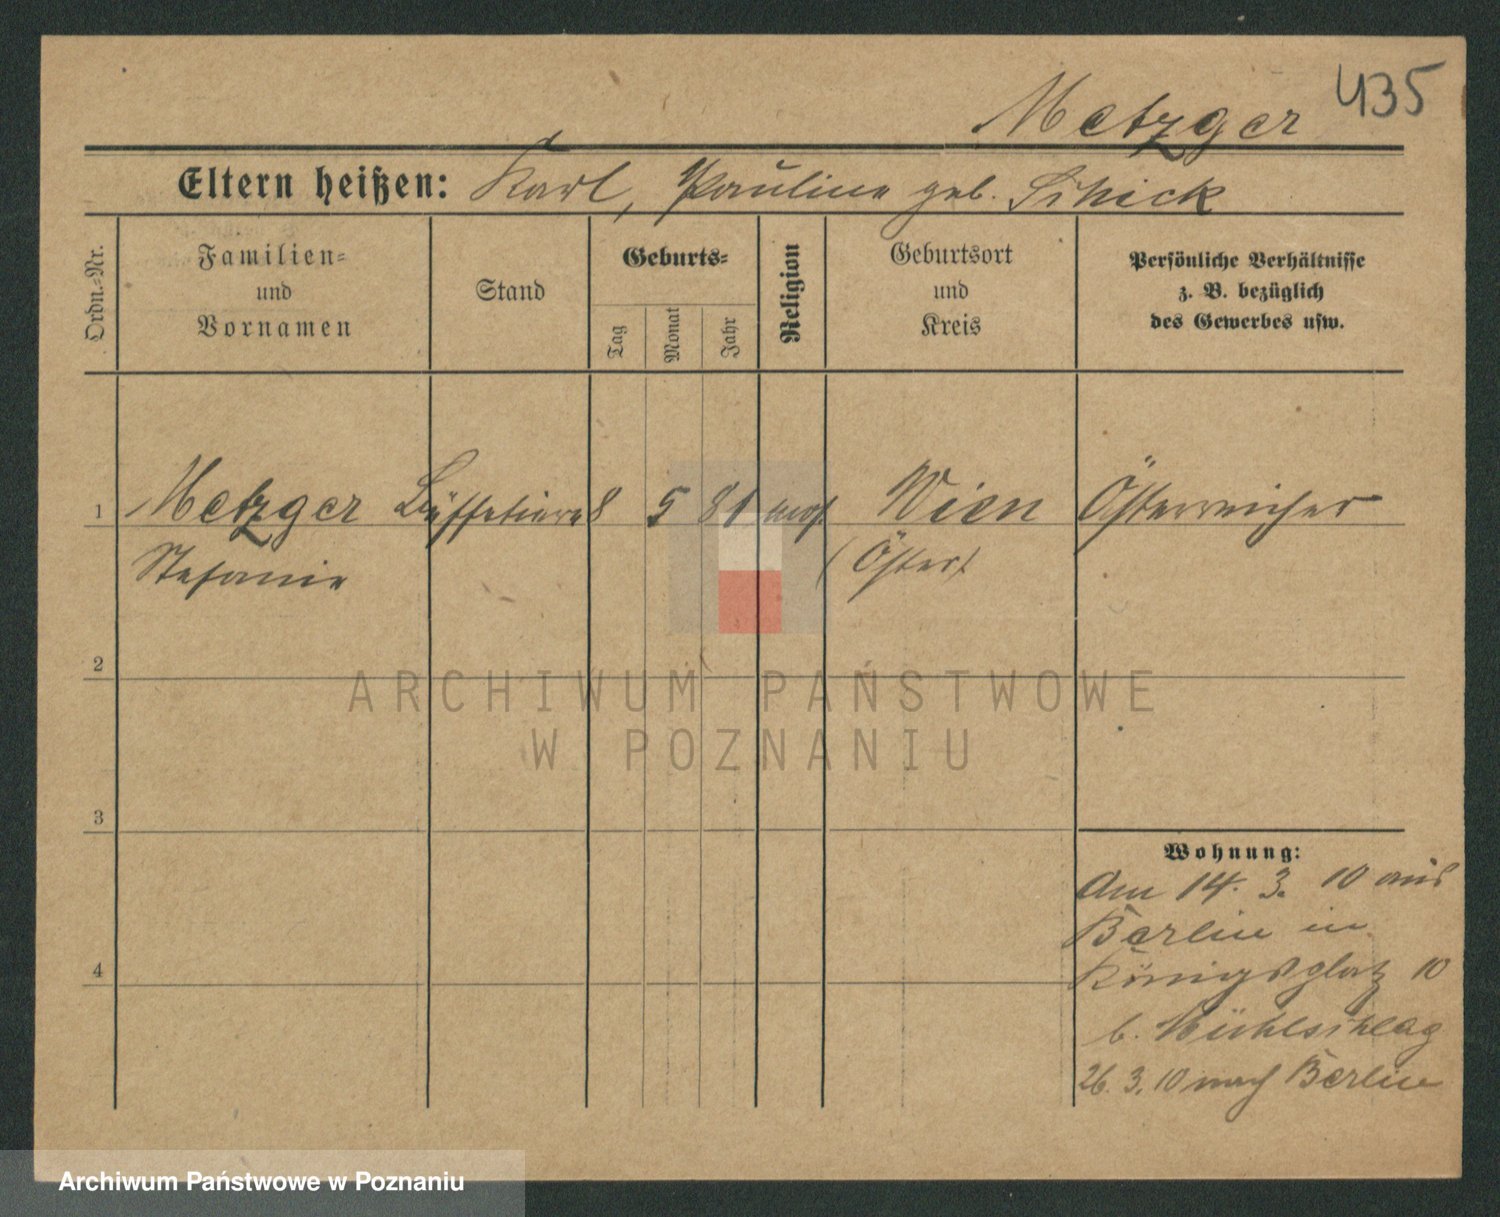 435
Metzger
Eltern heißen: Karl, Pauline geb. Schick
Ordn.-Nr.
Familien-
und
Vornamen
Stand
Geburts-
Tag
Monat
Jahr
Religion
Geburtsort
und
Kreis
Persönliche Verhältnisse
z. B. bezüglich
des Gewerbes usw.
1 Metzger Büffetiere 8 5 81 mos. Wien Österreicher
Stefanie (Österr.)
2
ARCHIWUM PAŃSTWOWE
W POZNANIU
3
Wohnung:
Am 14. 3. 10 aus
Berlin in
4 Königsplatz 10
b.
26. 3. 10 nach Berlin
Archiwum Państwowe w Poznaniu